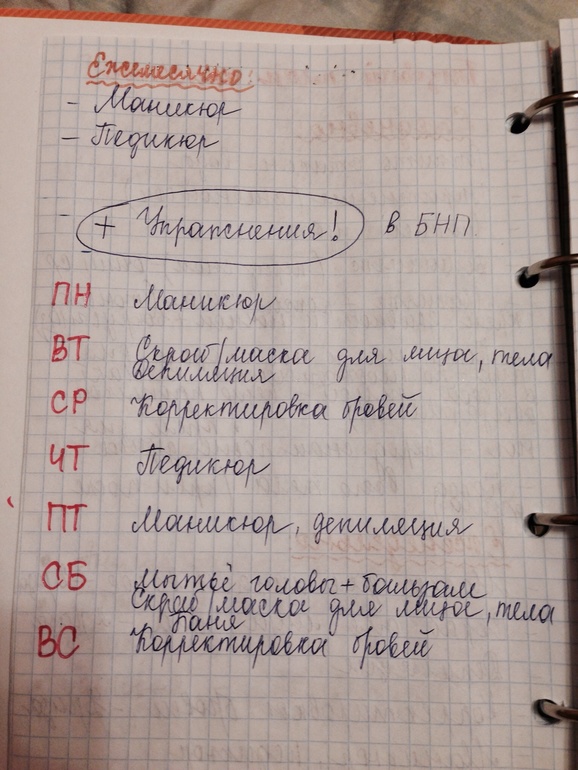 Ежемесячно:
- Маникюр
- Педикюр
- + Упражнения! в БНП.
ПН Маникюр
ВТ Скраб/маска для лица, тела
депиляция
СР Корректировка бровей
ЧТ Педикюр
ПТ Маникюр, депиляция
СБ Мытьё головы + бальзам
Скраб/маска для лица, тела
Баня
ВС Корректировка бровей